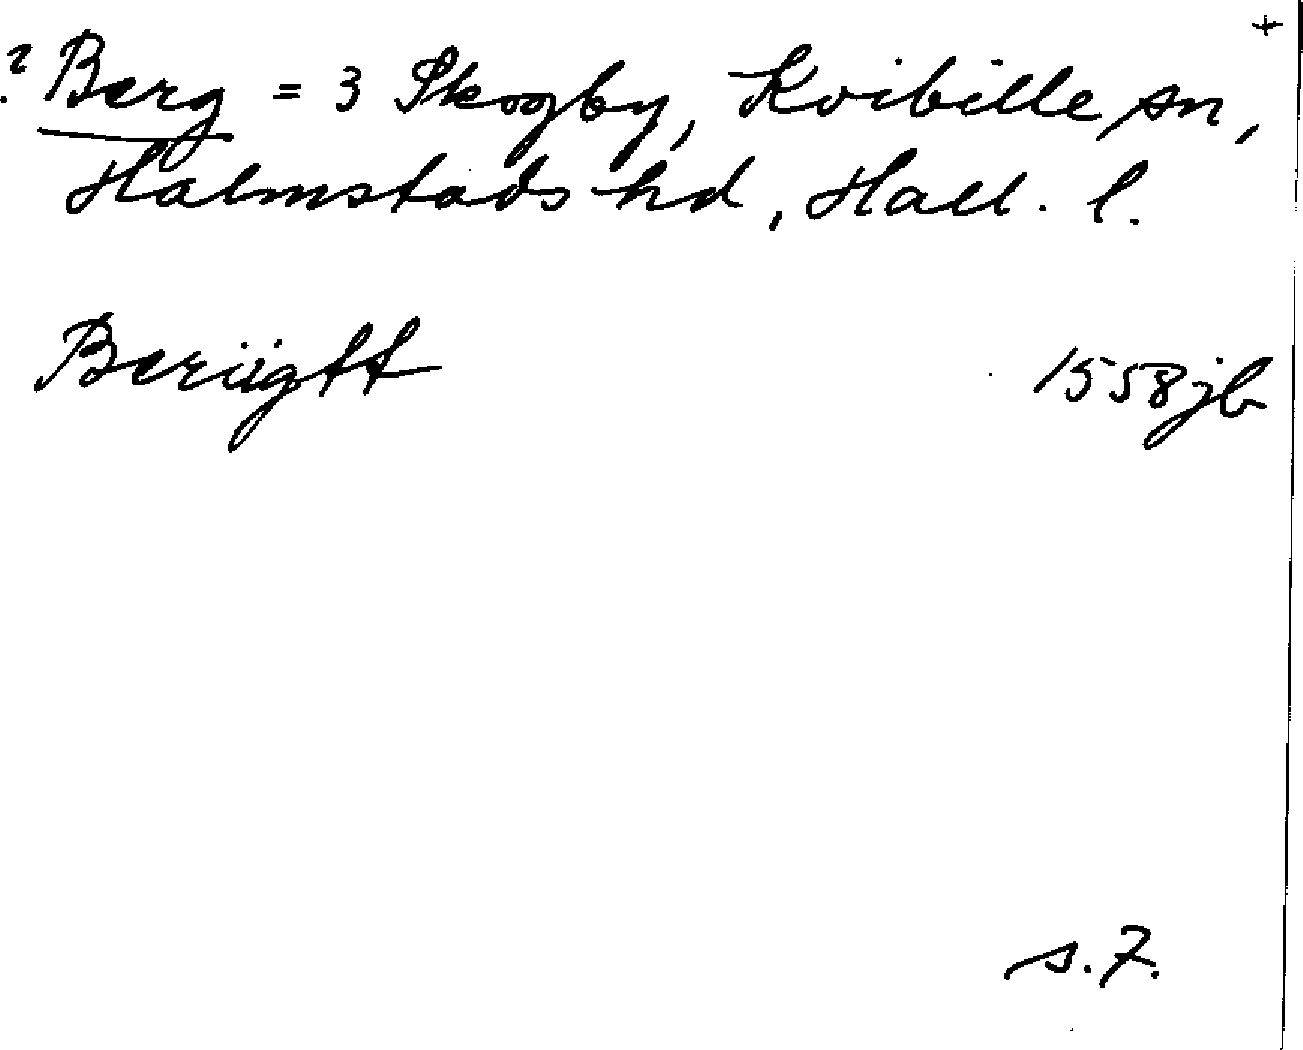 +
? Berg = 3 Skogby, Kvibille sn,
Halmstads hd, Hall. l.
Beriigtt 1558 jb
s. 7.